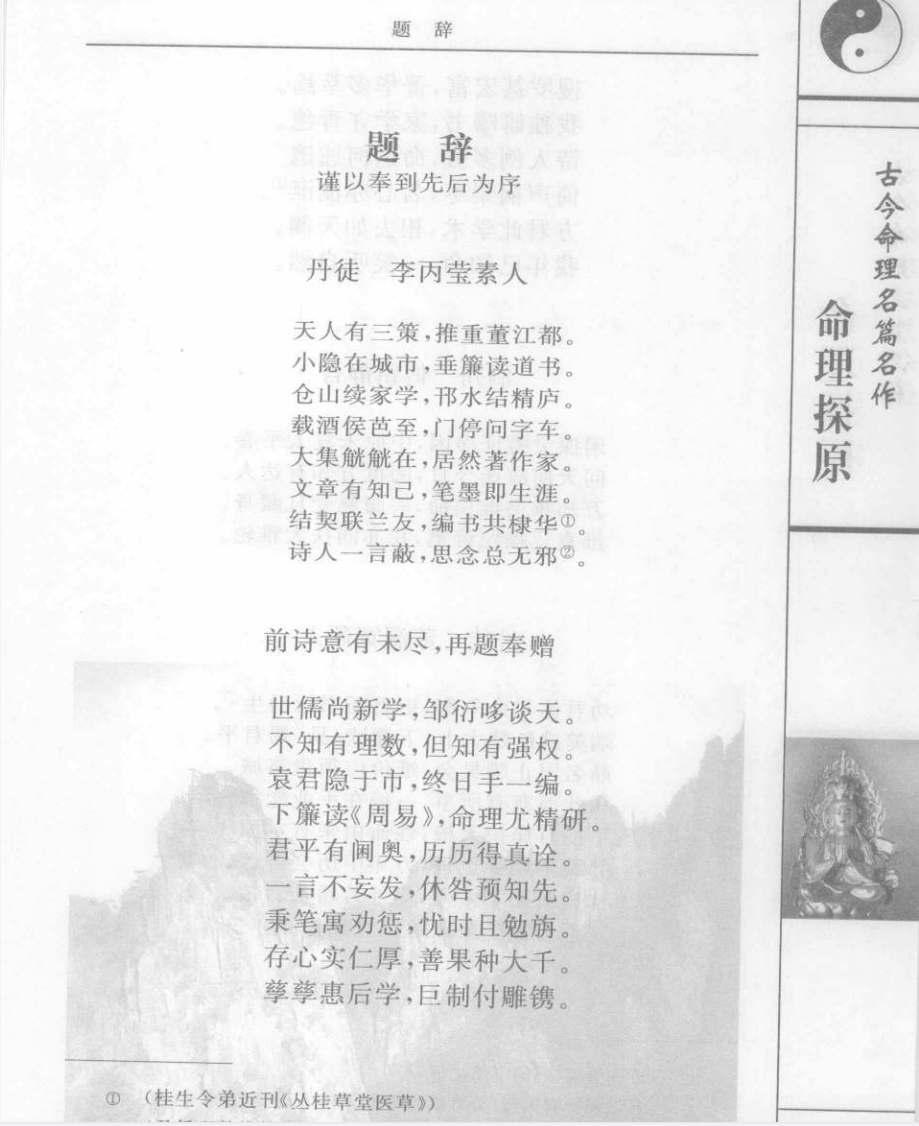 题 辞
题 辞
谨以奉到先后为序
丹徒 李丙莹素人
天人有三策,推重董江都。
小隐在城市,垂簾读道书。
仓山续家学,邗水结精庐。
载酒侯芭至,门停问字车。
大集觥觥在,居然著作家。
文章有知己,笔墨即生涯。
结契联兰友,编书共棣华①。
诗人一言蔽,思念总无邪②。
前诗意有未尽,再题奉赠
世儒尚新学,邹衍哆谈天。
不知有理数,但知有强权。
袁君隐于市,终日手一编。
下簾读《周易》,命理尤精研。
君平有阃奥,历历得真诠。
一言不妄发,休咎预知先。
秉笔寓劝惩,忧时且勉旃。
存心实仁厚,善果种大千。
孳孳惠后学,巨制付雕镌。
① (桂生令弟近刊《丛桂草堂医草》)
古今命理名篇名作
命理探原